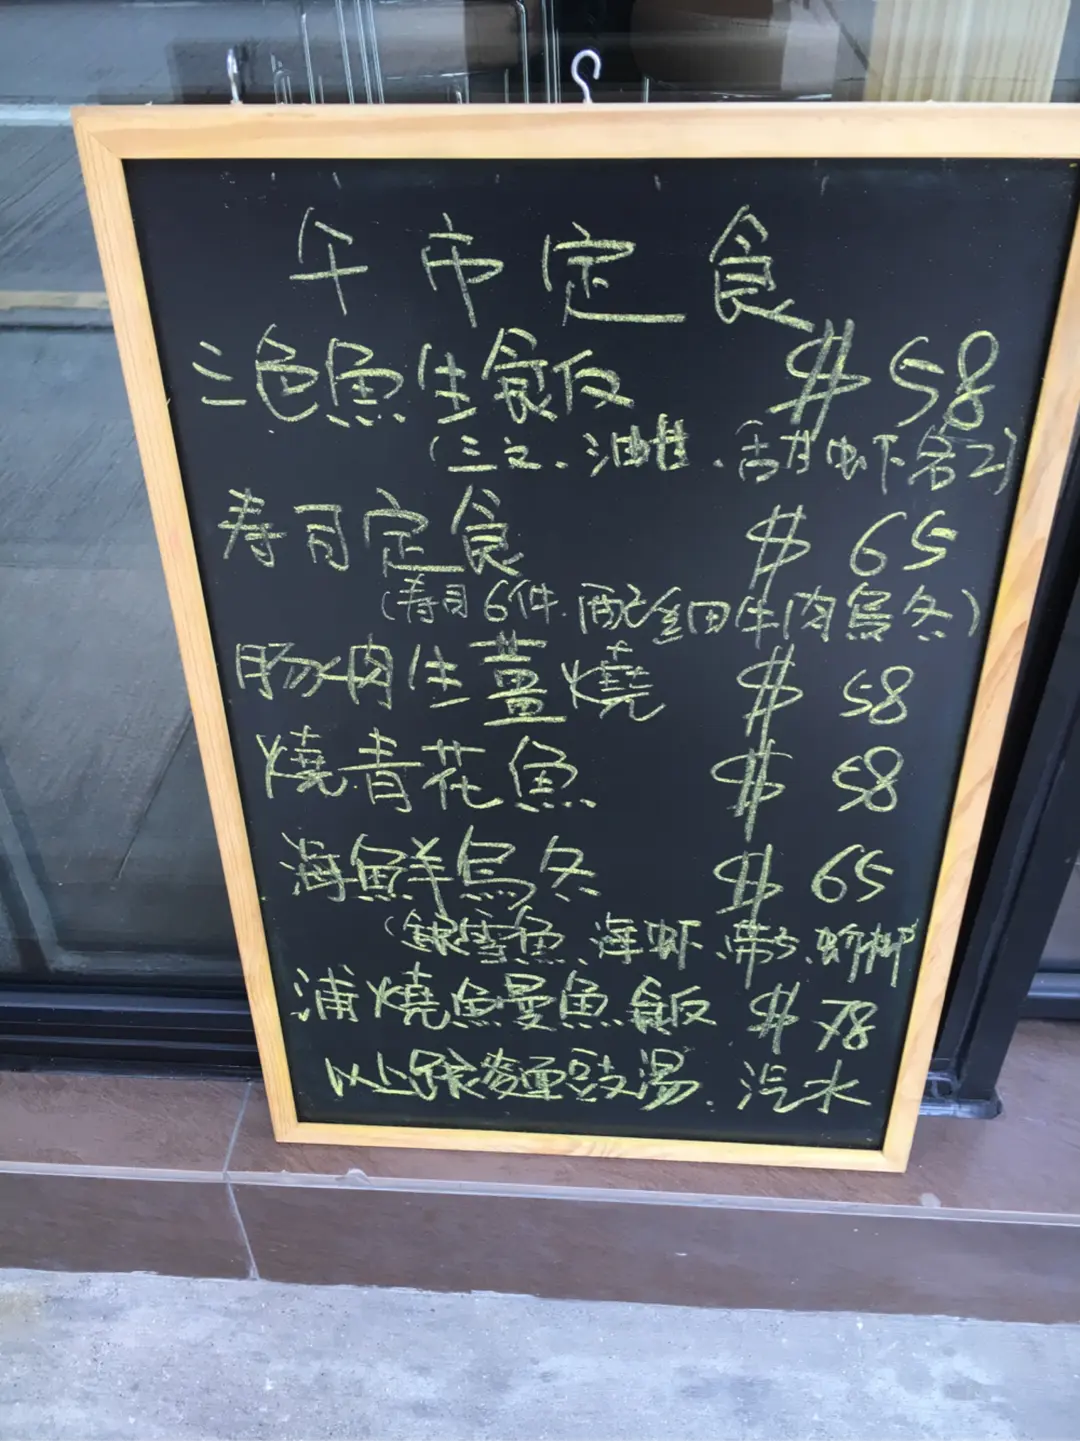 午市定食
三色魚生飯 $58
(三文、油甘、甜虾各2)
寿司定食 $65
(寿司6件.配金田牛肉烏冬)
肠肉生薑燒 $58
燒青花魚 $58
海鮮烏冬 $65
(銀雪魚、海虾、带子、蚧柳)
浦燒鰻魚飯 $78
以上跟麵豉湯.汽水